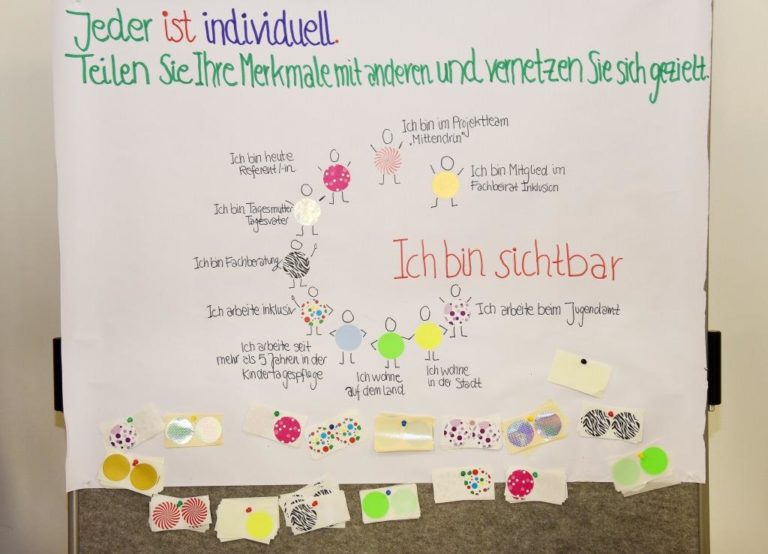 Jeder ist individuell.
Teilen Sie Ihre Merkmale mit anderen und vernetzen Sie sich gezielt.
Ich bin im Projektteam
„Mittendrin"
Ich bin heute
Referent/-in
Ich bin Mitglied im
Fachbeirat Inklusion
Ich bin Tagesmutter
Tagesvater
Ich bin Fachberatung
Ich bin sichtbar
Ich arbeite inklusiv
Ich arbeite beim Jugendamt
Ich arbeite seit
mehr als 5 Jahren in der
Kindertagespflege
Ich wohne
auf dem Land
Ich wohne
in der Stadt